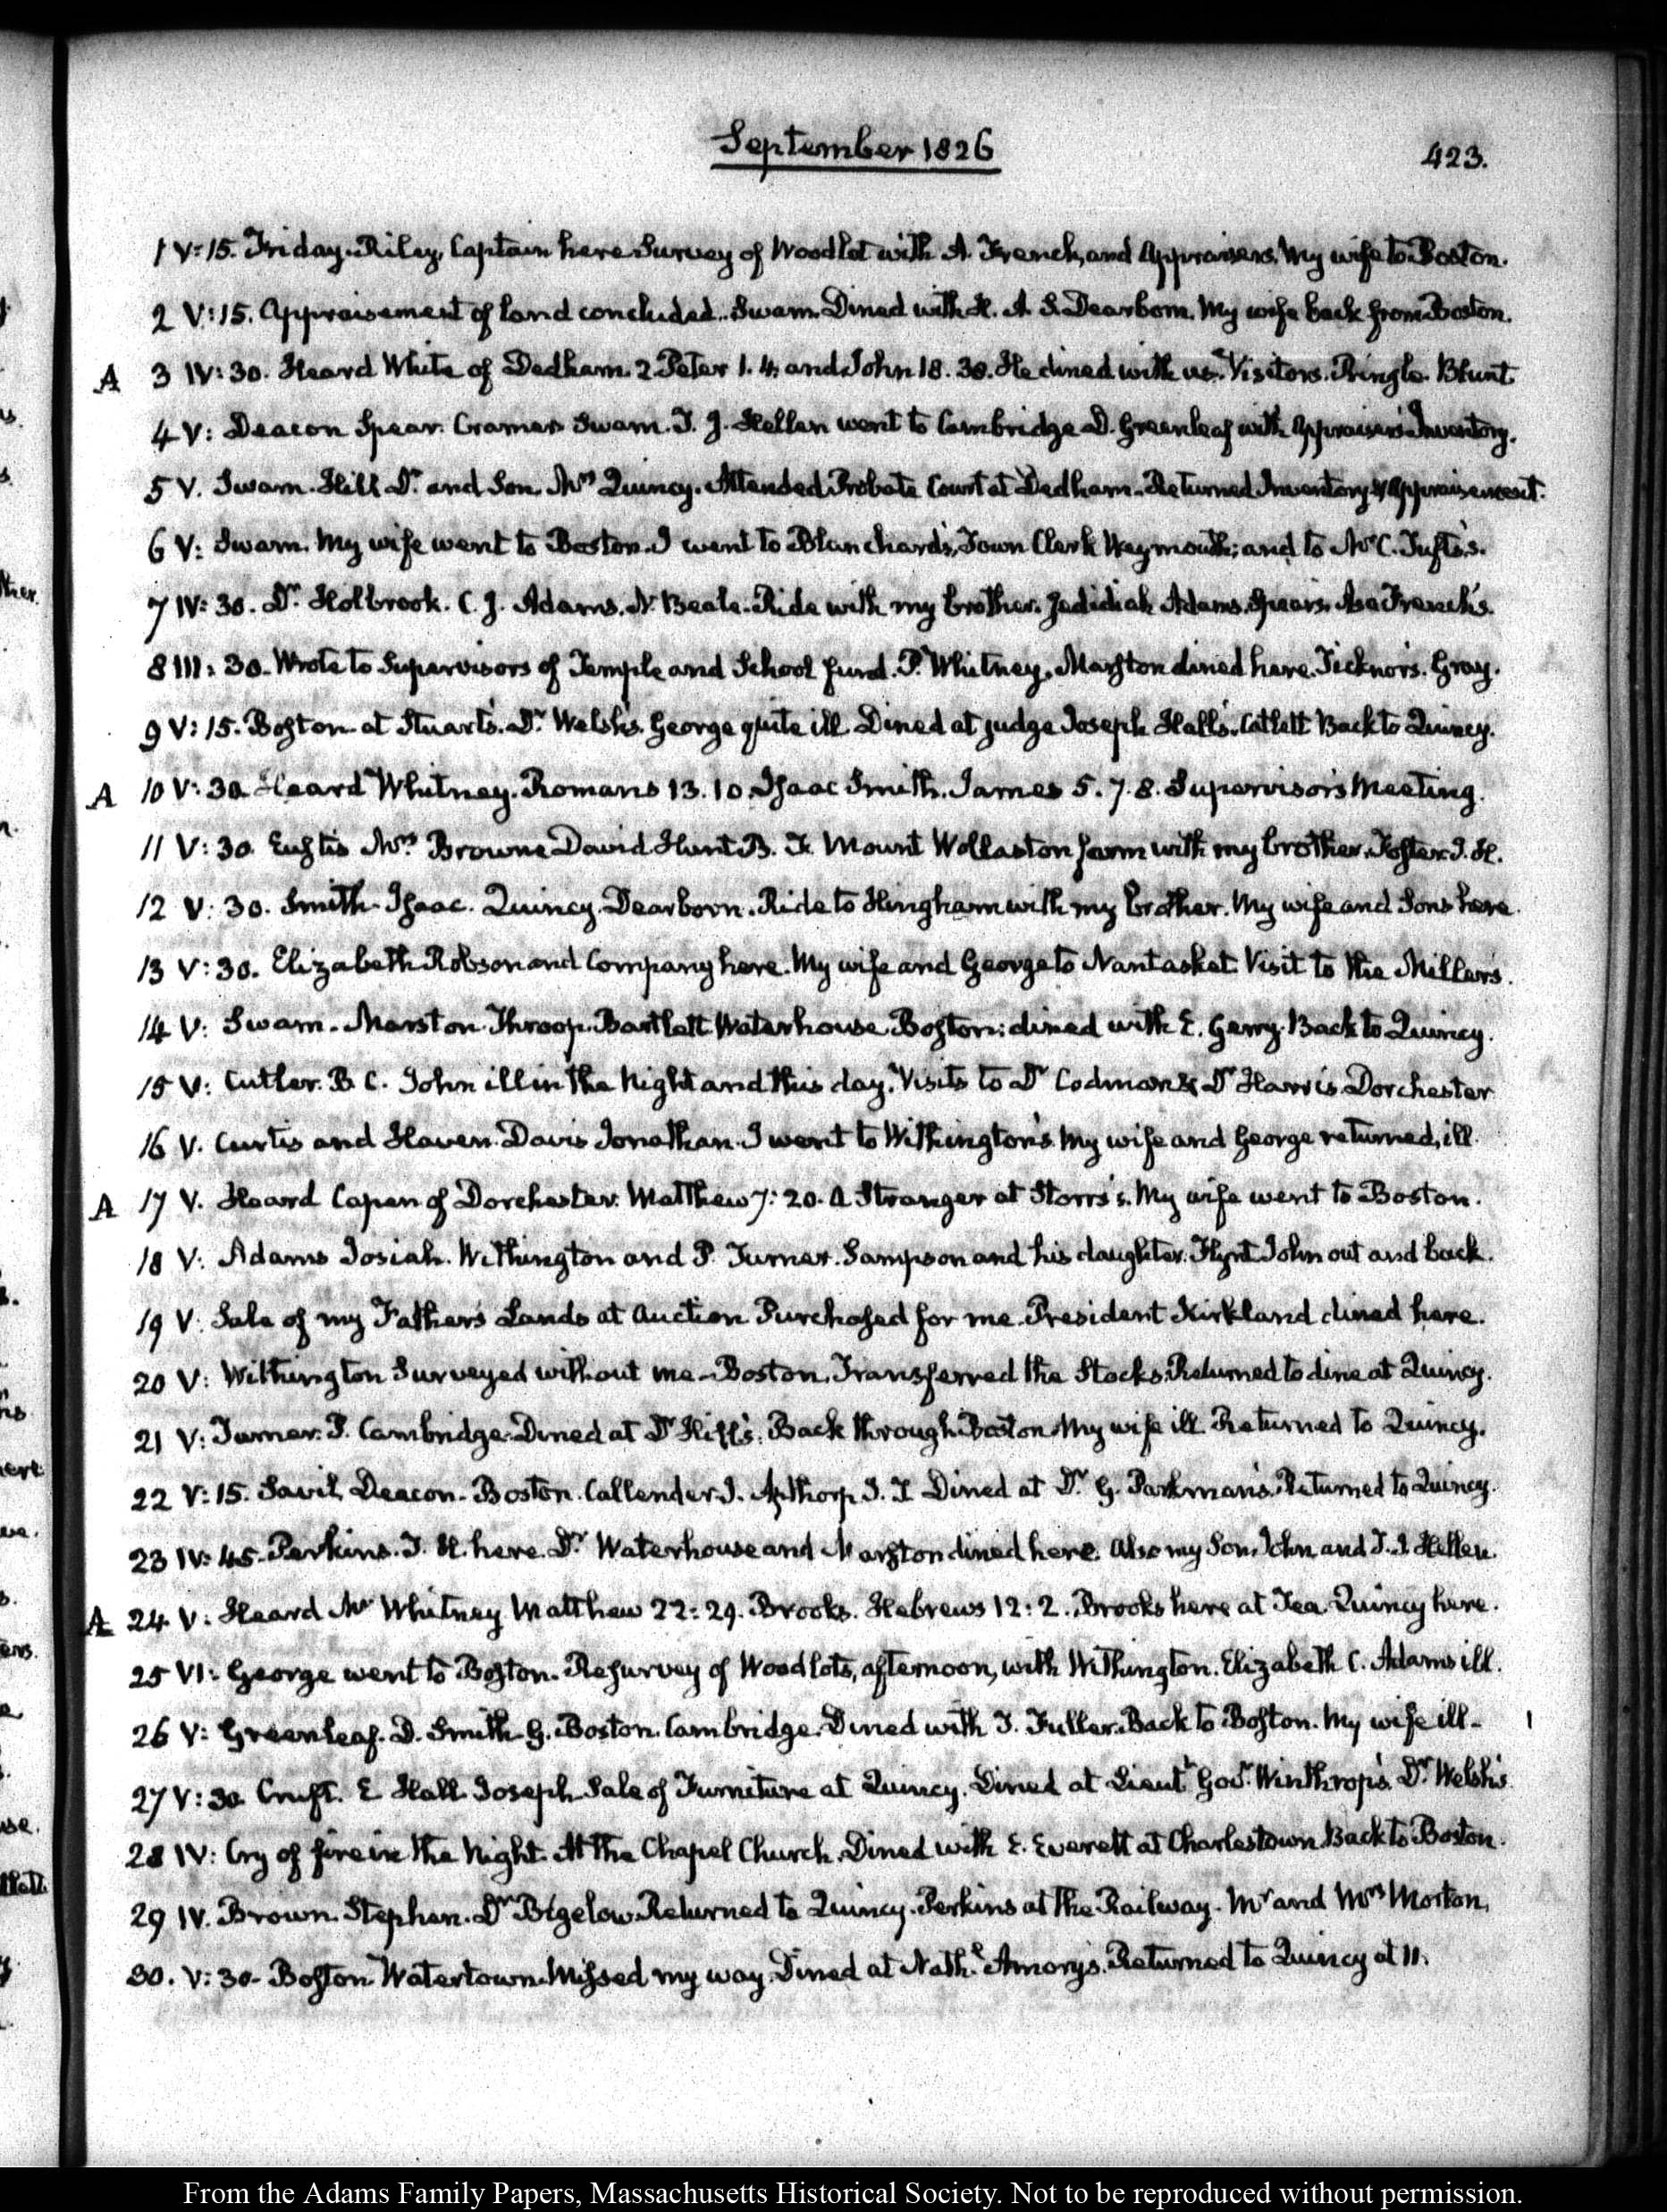 September 1826
423.
1 V:15. Friday. Riley, Captain here Survey of Woodlot with A. French, and Appraisers. My wife to Boston.
2 V:15. Appraisement of land concluded. Swam. Dined with H. A. S. Dearborn. My wife back from Boston.
A 3 IV:30. Heard White of Dedham. 2 Peter 1. 4. and John 18. 38. He dined with us. Visitors. Pringle. Blunt
4 V: Deacon Spear. Cramer. Swam. T. J. Hellen went to Cambridge D. Greenleaf with Appraiser's Inventory.
5 V. Swam. Hill Dr. and Son. Mrs Quincy. Attended Probate Court at Dedham. Returned Inventory & Appraisement.
6 V: Swam. My wife went to Boston. I went to Blanchard's, Town Clerk Weymouth; and to Mr C. Tufts's.
7 IV:30. Dr. Holbrook. C. J. Adams. N. Beale. Ride with my brother. Jedidiah Adams. Spears. Asa French's.
8 III:30. Wrote to Supervisors of Temple and School fund. P. Whitney, Marston dined here. Ticknor's. Gray.
9 V:15. Boston at Stuart's. Dr. Welsh's. George quite ill. Dined at judge Joseph Hall's. Catlett Back to Quincy.
A 10 V:30. Heard Whitney. Romans 13. 10. Isaac Smith. James 5. 7. 8. Supervisors Meeting.
11 V:30. Eustis Mrs. Browne David Hunt B. F. Mount Wollaston farm with my brother. Foster J. H.
12 V:30. Smith Isaac. Quincy. Dearborn. Ride to Hingham with my brother. My wife and Sons here.
13 V:30. Elizabeth Robson and Company here. My wife and George to Nantasket. Visit to the Millers.
14 V: Swam. Marston. Throop. Bartlett. Waterhouse. Boston: dined with E. Gerry. Back to Quincy.
15 V: Cutler. B. C. John ill in the night and this day. Visits to Dr Codman & Dr Harris Dorchester
16 V. Curtis and Haven. Davis Jonathan. I went to Withington's. My wife and George returned, ill.
A 17 V. Heard Capen of Dorchester. Matthew 7: 20. A Stranger at Storrs's. My wife went to Boston.
18 V: Adams Josiah. Withington and P. Turner. Sampson and his daughter. Flynt. John out and back.
19 V: Sale of my Father's Lands at Auction Purchased for me. President Kirkland dined here.
20 V: Withington Surveyed without me. Boston. Transferred the Stocks. Returned to dine at Quincy.
21 V: Turner. P. Cambridge. Dined at Dr Hill's. Back through Boston. My wife ill. Returned to Quincy.
22 V:15. Savil Deacon. Boston. Callender J. Apthorp J. T. Dined at Dr. G. Parkman's. Returned to Quincy.
23 IV:45. Perkins. T. H. here. Dr. Waterhouse and Marston dined here. Also my Son John and T. J. Hellen.
A 24 V: Heard Mr Whitney Matthew 22: 29. Brooks. Hebrews 12: 2. Brooks here at Tea. Quincy here.
25 VI: George went to Boston. Resurvey of Woodlots, afternoon, with Withington. Elizabeth C. Adams ill.
26 V: Greenleaf. D. Smith G. Boston. Cambridge. Dined with T. Fuller. Back to Boston. My wife ill.
27 V:30. Cruft. E Hall Joseph Sale of Furniture at Quincy. Dined at Lieutt Govr. Winthrop's. Dr Welsh's
28 IV: Cry of fire in the Night. At the Chapel Church. Dined with E. Everett at Charlestown. Back to Boston.
29 IV. Brown. Stephen. Dr Bigelow. Returned to Quincy. Perkins at the Railway. Mr and Mrs Morton.
30. V:30. Boston. Watertown. Missed my way. Dined at Nathl. Amory's. Returned to Quincy at 11.
From the Adams Family Papers, Massachusetts Historical Society. Not to be reproduced without permission.